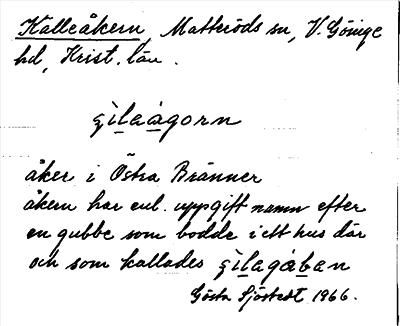 Källeåkern, Matteröds sn, V. Göinge
hd, Krist. län.
åker i Östra Brännen
åkern har enl. uppgift namn efter
en gubbe som bodde i ett hus där
och som kallades
Gösta Sjöstedt 1966.